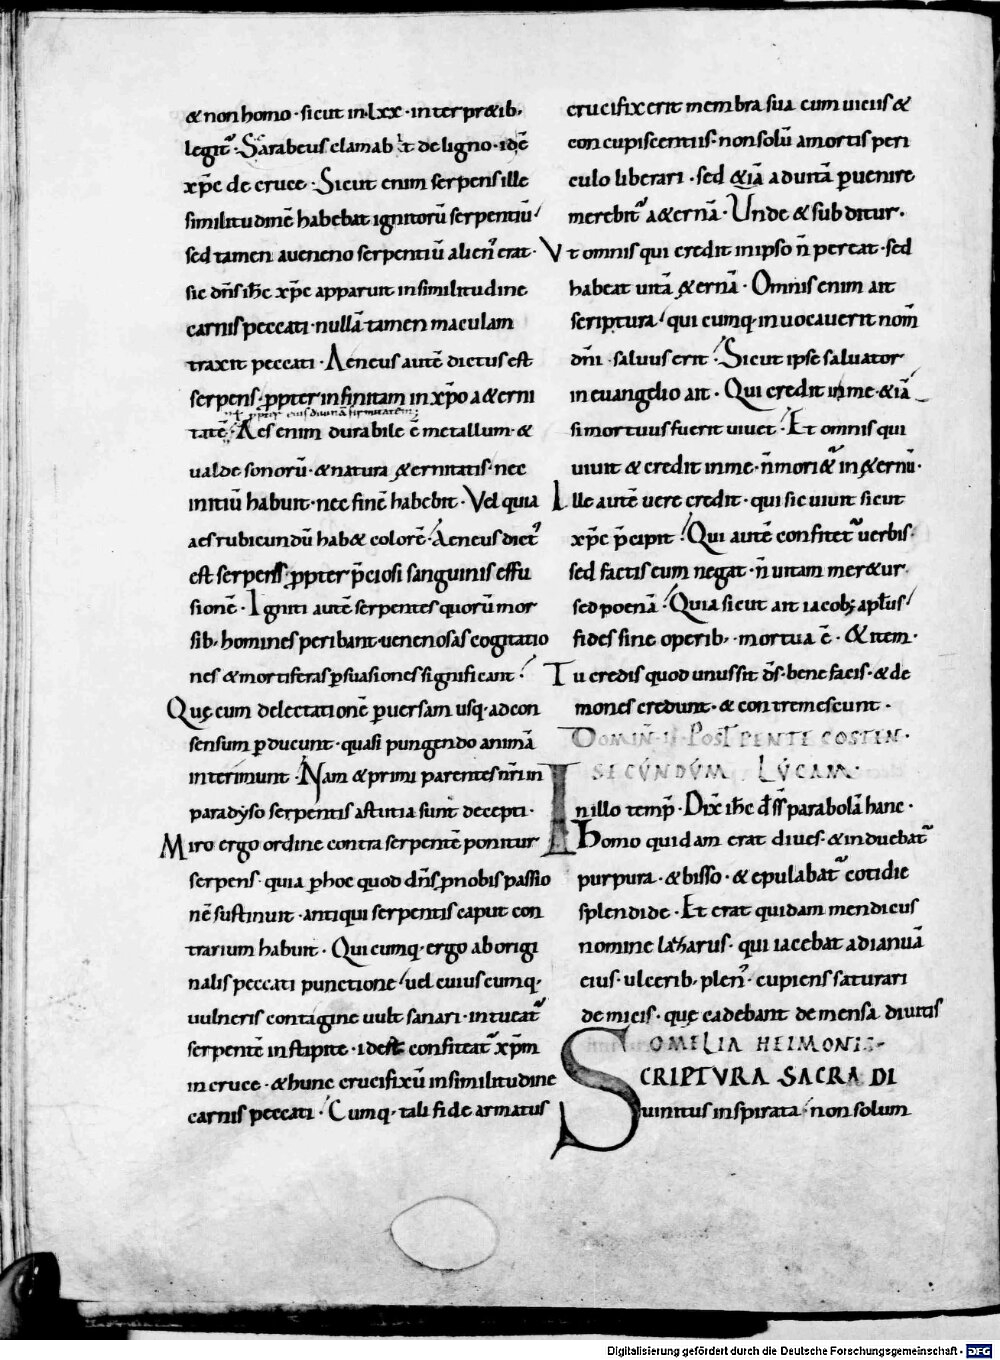 & non homo · sicut in lxx · interpr&ib;
legit᷑ · Scarabeus clamab̾t de ligno · idē
xp̄c de cruce · Sicut enim serpens ille
similitudinē habebat ignitorū serpentiū
sed tamen aueneno serpentiū alien᷒ erat ·
sic dn̄s ih̄c xp̄c apparuit insimilitudine
carnis peccati · nullā tamen maculam
traxit peccati · Aeneus autē dictus est
serpens · ꝓpter infinitam in xp̄o a&erni
ꝓpter eius diuinā firmitatem;
tatē · Aes enim durabile ē metallum · &
ualde sonorū · & natura &ernitatis · nec
initiū habuit · nec finē habebit · Vel quia
aes rubicundū hab& colorē · Aeneus dict᷒
est serpens · ꝓpter p̄ciosi sanguinis effu
sionē · Igniti autē serpentes quorū mor
sib; homines peribant · uenenosas cogitatio
nes & mortiferas ꝑsuasiones significant ·
Quę cum delectationē ꝑuersam usq; ad con
sensum ꝑducunt · quasi pungendo animā
interimunt · Nam & primi parentes nr̄i in
paradyso serpentis astutia sunt decepti ·
Miro ergo ordine contra serpentē ponitur
serpens · quia ꝑ hoc quod dn̄s ꝓ nobis passio
nē sustinuit · antiqui serpentis caput con
trarium habuit · Quicumq; ergo ab origi
nalis peccati punctione · uel cuiuscumq;
uulneris contagine uult sanari · intueat᷑
serpentē in stipite · idest confiteat᷑ xp̄m
in cruce · & hunc crucifixū insimilitudine
carnis peccati · Cumq; tali fide armatus
crucifixerit membra sua cum uiciis &
concupiscentiis · non solū a mortis peri
culo liberari · sed &iā ad uitā ꝑuenire
merebit᷑ a&ernā · Unde & subditur ·
Vt omnis qui credit in ipso n̄ pereat · sed
habeat uitā &ernā · Omnis enim ait
scriptura · quicumq; inuocauerit nom̄
dn̄i · saluus erit · Sicut ipse saluator
in euangelio ait · Qui credit in me · &iā
si mortuus fuerit uiuet · Et omnis qui
uiuit & credit in me · n̄ mori&᷑ in &ernū ·
Ille autē uere credit · qui sic uiuit sicut
xp̄c p̄cipit · Qui autē confitet᷑ uerbis ·
sed factis eum negat · n̄ uitam mer&ur ·
sed poenā · Quia sicut ait iacob; apl̄us
fides sine operib; · mortua ē · & item ·
Tu credis quod unus sit d̄s · bene facis · & de
mones credunt · & contremescunt ·
DOMIN̄ · II · POST PENTECOSTEN ·
SECUNDUM LUCAM ·
In illo temp̄ · Dix̄ ih̄c d̄s̄s̄ parabolā hanc ·
Homo quidam erat diues · & induebat᷑
purpura · & bisso · & epulabat᷑ cotidie
splendide · Et erat quidam mendicus
nomine lazarus · qui iacebat ad ianuā
eius · ulcerib; plen᷒ · cupiens saturari
de micis · quę cadebant de mensa diuitis
OMELIA HEIMONIS ·
SCRIPTVRA SACRA DI
uinitus inspirata · non solum
Digitalisierung gefördert durch die Deutsche Forschungsgemeinschaft - DFG